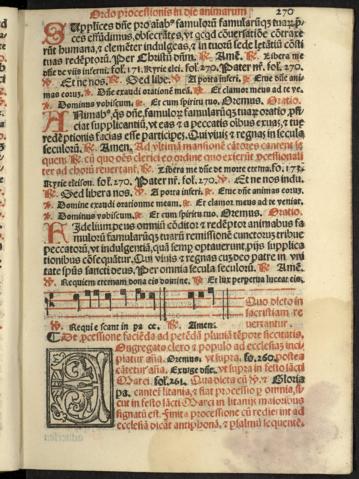 Ordo processionis in die animarum 270
Supplices dñe pro aĩabus famulorũ famularũqz tuarũ p
ces effudimus, obsecrãtes, vt qcqd cõuersatiõe cõtraxe
rũt humana, & clemẽter indulgeas, & in tuorũ sede letãtiũ cõsti
tuas redẽptorũ. Per Christũ dñm. ℟. Amẽ. ℣. Libera me
dñe de viis inferni. fol. 171. Kyrie elei. fol. 270. Pater nr̃. fol. 270.
℣. Et ne nos. ℟. Sed libe. ℣. A porta inferi. ℟. Erue dñe ani
mas eorum. ℣. Dñe exaudi orationẽ meã. ℟. Et clamor meus ad te ve.
Dominus vobiscum. ℟. Et cum spiritu tuo. Oremus. Oratio.
Animabus, qs dñe, famulorũ famularũqz tuarũ oratio, pfi
ciat supplicantiũ, vt eas & a peccatis oĩbus exuas, & tue
redẽptionis facias esse participes. Qui viuis & regnas in secula
seculorũ. ℟. Amen. Ad vltimã mansionẽ cãtores cantent se
quem ℟. cũ quo oẽs clerici eo ordine quo exierũt processionali
ter ad chorũ reuertant. ℟. Libera me dñe de morte eterna. fo. 173.
Kyrie eleison. fol. 270. Pater nr̃. fol. 270. ℣. Et ne nos indu.
℟. Sed libera nos. ℣. A porta inferi. ℟. Erue dñe animas eorum.
℣. Domine exaudi orationem meam. ℟. Et clamor meus ad te veniat.
Dominus vobiscum. ℟. Et cum spiritu tuo. Oremus. Oratio.
Fidelium deus omniũ cõditor & redẽptor animabus fa
mulorũ famularũqz tuarũ remissionẽ cunctorus tribue
peccatorũ, vt indulgentiã, quã semp optauerunt, pijs supplica
tionibus cõsequãtur. Qui viuis & regnas cũ deo patre in vni
tate spũs sancti deus, Per omnia secula seculorũ. ℟. Amẽ.
℣. Requiem eternam dona eis domine. ℟. Et lux perpetua luceat eis.
Quo dicto in
sacristiam re
uertantur.
℣. Requi e scant in pa ce. ℟. Amen.
De processione faciẽda ad petẽdã pluuiã tẽpore siccitatis.
Congregato clero & populo ad ecclesiã, inci
piatur añã. Oremus, vt supra. fo. 260. postea
cãtetur añã. Exurge dñe. vt supra in festo sãcti
Marci. fol. 261. Qua dicta cũ ℣. & Gloria
pa. cantet litania, & fiat processio p omnia, si
cut in festo sãcti Marci in litanijs maioribus
signatũ est. Finita processione cũ rediẽt int ad
ecclesiã dicat antiphonã, & psalmũ sequentẽ.